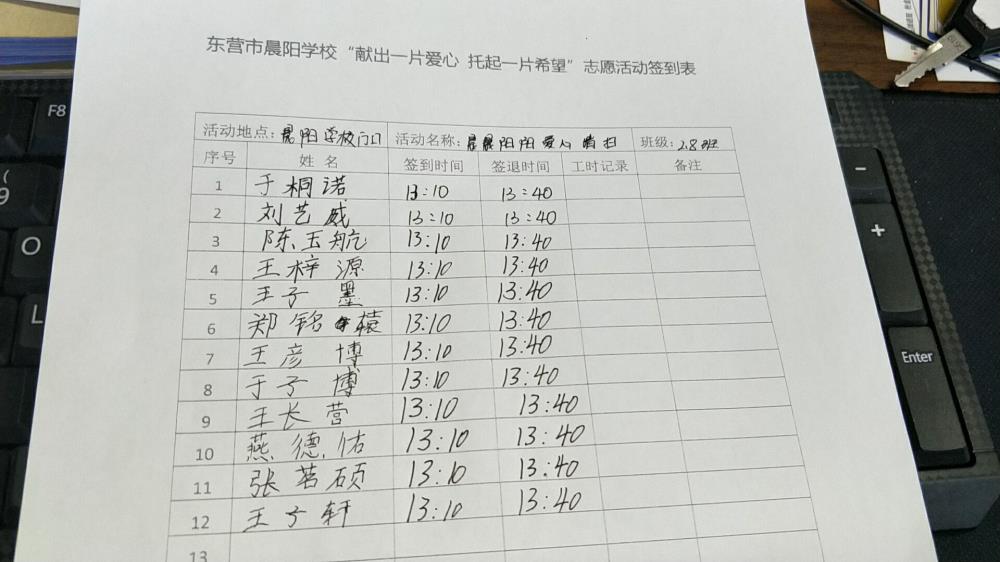 东营市晨阳学校“献出一片爱心 托起一片希望”志愿活动签到表
活动地点：晨阳学校门口 活动名称：晨晨阳阳爱心 清扫 班级：2.8班
序号 姓名 签到时间 签退时间 工时记录 备注
1 于桐诺 13:10 13:40
2 刘艺威 13:10 13:40
3 陈玉航 13:10 13:40
4 王梓源 13:10 13:40
5 王子墨 13:10 13:40
6 郑铭 13:10 13:40
7 王彦博 13:10 13:40
8 于子博 13:10 13:40
9 王长营 13:10 13:40
10 燕德佑 13:10 13:40
11 张茗硕 13:10 13:40
12 王子轩 13:10 13:40
13
F8
(
9
O
L
-
+
Enter